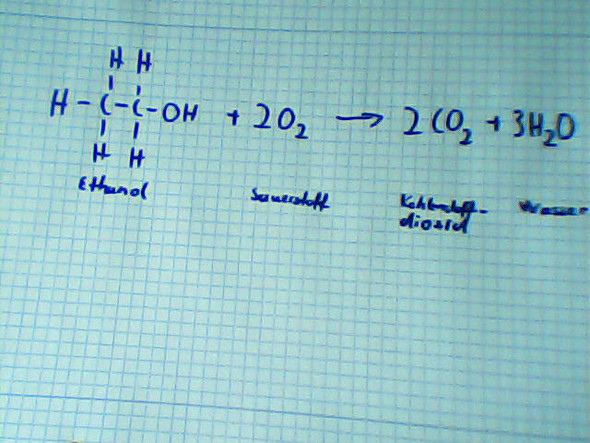 H H
H - C - C - OH + 2O₂ → 2CO₂ + 3H₂O
H H
Ethanol Sauerstoff Kohlenstoff- Wasser
dioxid